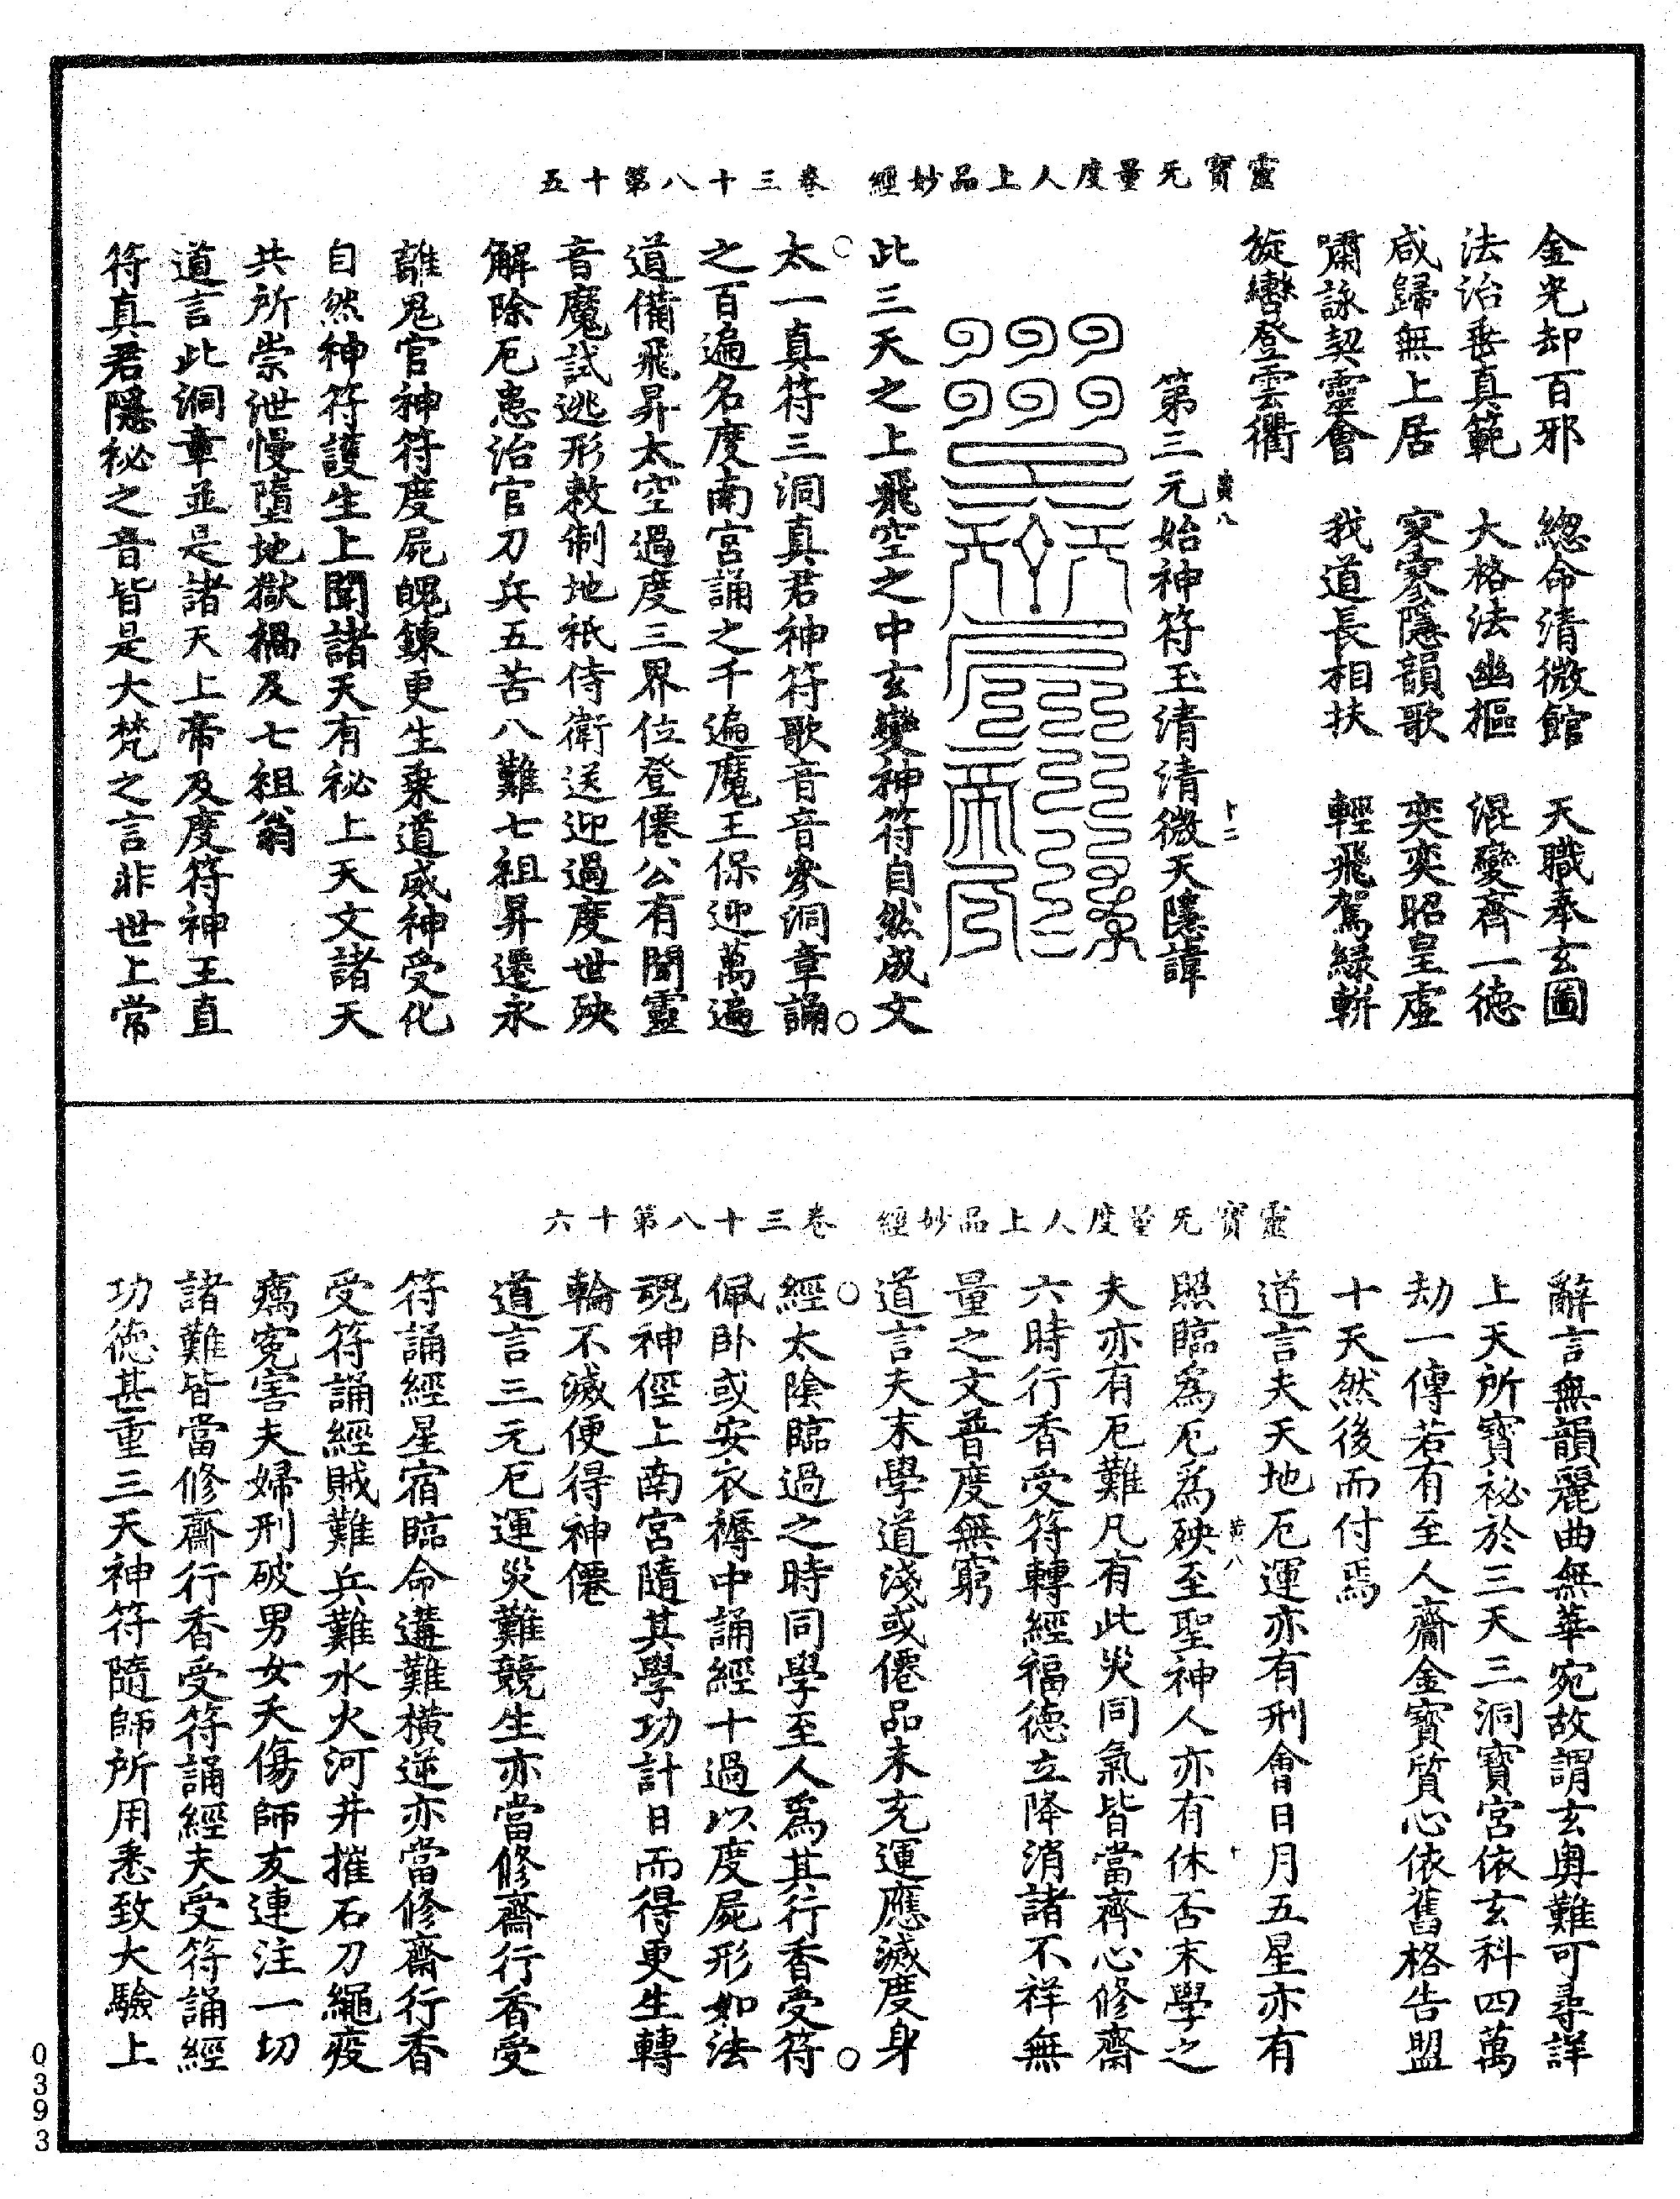 靈寶无量度人上品妙經　卷三十八第十五
金光却百邪　總命清微館　天職奉玄圖
法治垂真範　大格法幽樞　混變齊一德
咸歸無上居　寥寥隱韻歌　奕奕昭皇虛
嘯詠契靈會　我道長相扶　輕飛駕綠軿
旋轡登雲衢
黃八　十二
第三元始神符玉清清微天隱諱
此三天之上飛空之中玄變神符自然成文
太一真符三洞真君神符歌音音參洞章誦
之百遍名度南宮誦之千遍魔王保迎萬遍
道備飛昇太空過度三界位登僊公有聞靈
音魔試逃形敕制地祇侍衛送迎過度世殃
解除厄患治官刀兵五苦八難七祖昇遷永
離鬼官神符度屍魄鍊更生乗道威神受化
自然神符護生上聞諸天有祕上天文諸天
共所崇泄慢墮地獄禍及七祖翁
道言此洞章並是諸天上帝及度符神王直
符真君隱祕之音皆是大梵之言非世上常
靈寶无量度人上品妙經　卷三十八第十六
辭言無韻麗曲無華宛故謂玄奧難可尋詳
上天所寶祕於三天三洞寶宮依玄科四萬
劫一傳若有至人齎金寶質心依舊格告盟
十天然後而付焉
道言夫天地厄運亦有刑會日月五星亦有
黃八　十
照臨為厄為殃至聖神人亦有休否末學之
夫亦有厄難凡有此災同氣皆當齊心修齋
六時行香受符轉經福德立降消諸不祥無
量之文普度無窮
道言夫末學道淺或僊品未充運應滅度身
經太陰臨過之時同學至人為其行香受符
佩卧或安衣褥中誦經十過以度屍形如法
魂神徑上南宮隨其學功計日而得更生轉
輪不滅便得神僊
道言三元厄運災難競生亦當修齋行香受
符誦經星宿臨命遘難橫逆亦當修齋行香
受符誦經賊難兵難水火河井摧石刀繩疫
癘冤害夫婦刑破男女夭傷師友連注一切
諸難皆當修齋行香受符誦經夫受符誦經
功德甚重三天神符隨師所用悉致大驗上
0393